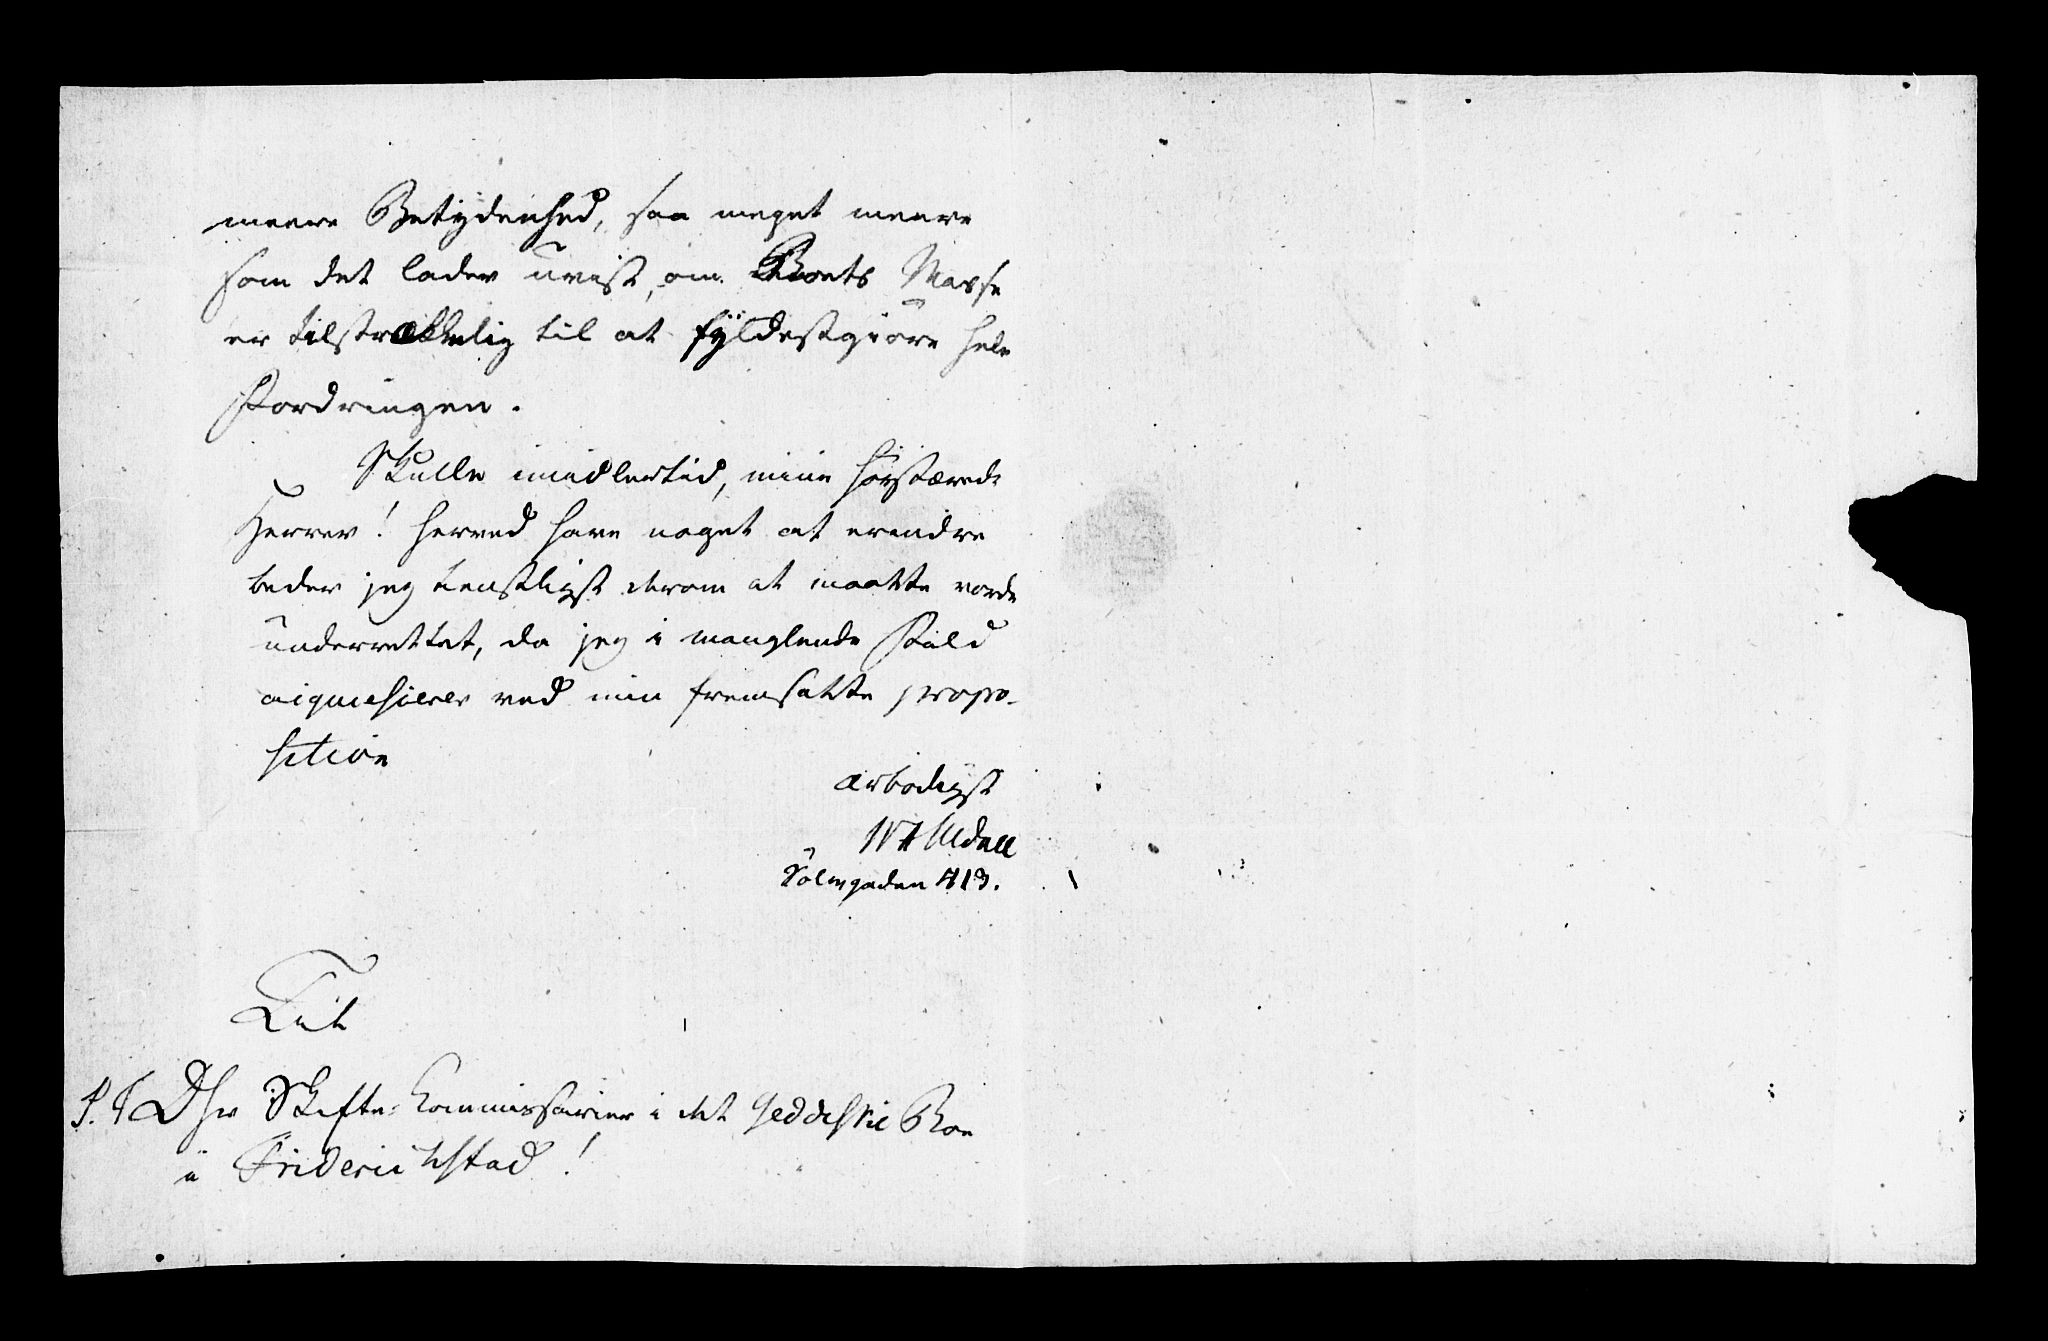 meere Betydenhed, saa meget meere
som det lader uvist, om Boets Masse
er tilstrækkelig til at fyldestgiøre hele
Fordringen.
Skulle imidlertid, mine høystærede
Herrer! herved have noget at erindre
beder jeg tienstligst derom at maatte vorde
underrettet, da jeg i manglende Fald
aiquiesierer ved min fremsatte propo-
sition
ærbødigst
Udall
Sölvgaden 413.
Til
S. T. DHr Skifte-Commissarier i det Boe
i Friderichstad!